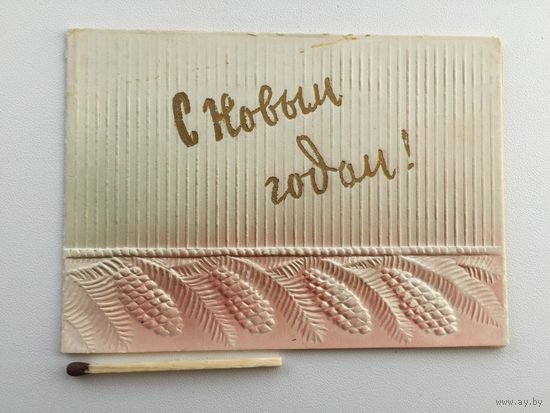 С Новым
годом!
www.ay.by